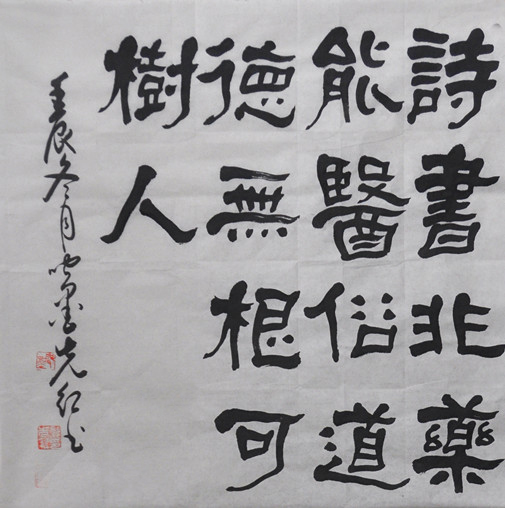 詩書非藥
能醫俗道
德無根可
樹人
壬辰冬月 墨 先红书